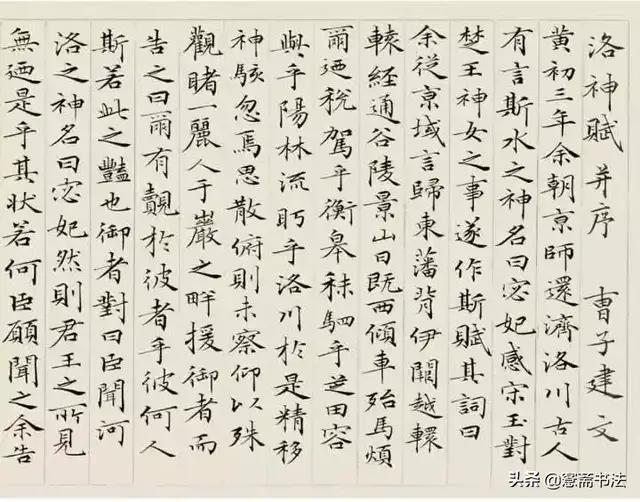 洛神賦并序 曹子建文
黃初三年余朝京師還濟洛川古人
有言斯水之神名曰宓妃感宋玉對
楚王神女之事遂作斯賦其詞曰
余從京域言歸東藩背伊闕越轘
轅經通谷陵景山日既西傾車殆馬煩
爾迺稅駕乎衡皋秣駟乎芝田容
與乎陽林流眄乎洛川於是精移
神駭忽焉思散俯則未察仰以殊
觀睹一麗人于巖之畔援御者而
告之曰爾有覿於彼者乎彼何人
斯若此之豔也御者對曰臣聞河
洛之神名曰宓妃然則君王之所見
無迺是乎其狀若何臣願聞之余告
头条 @愙斋书法